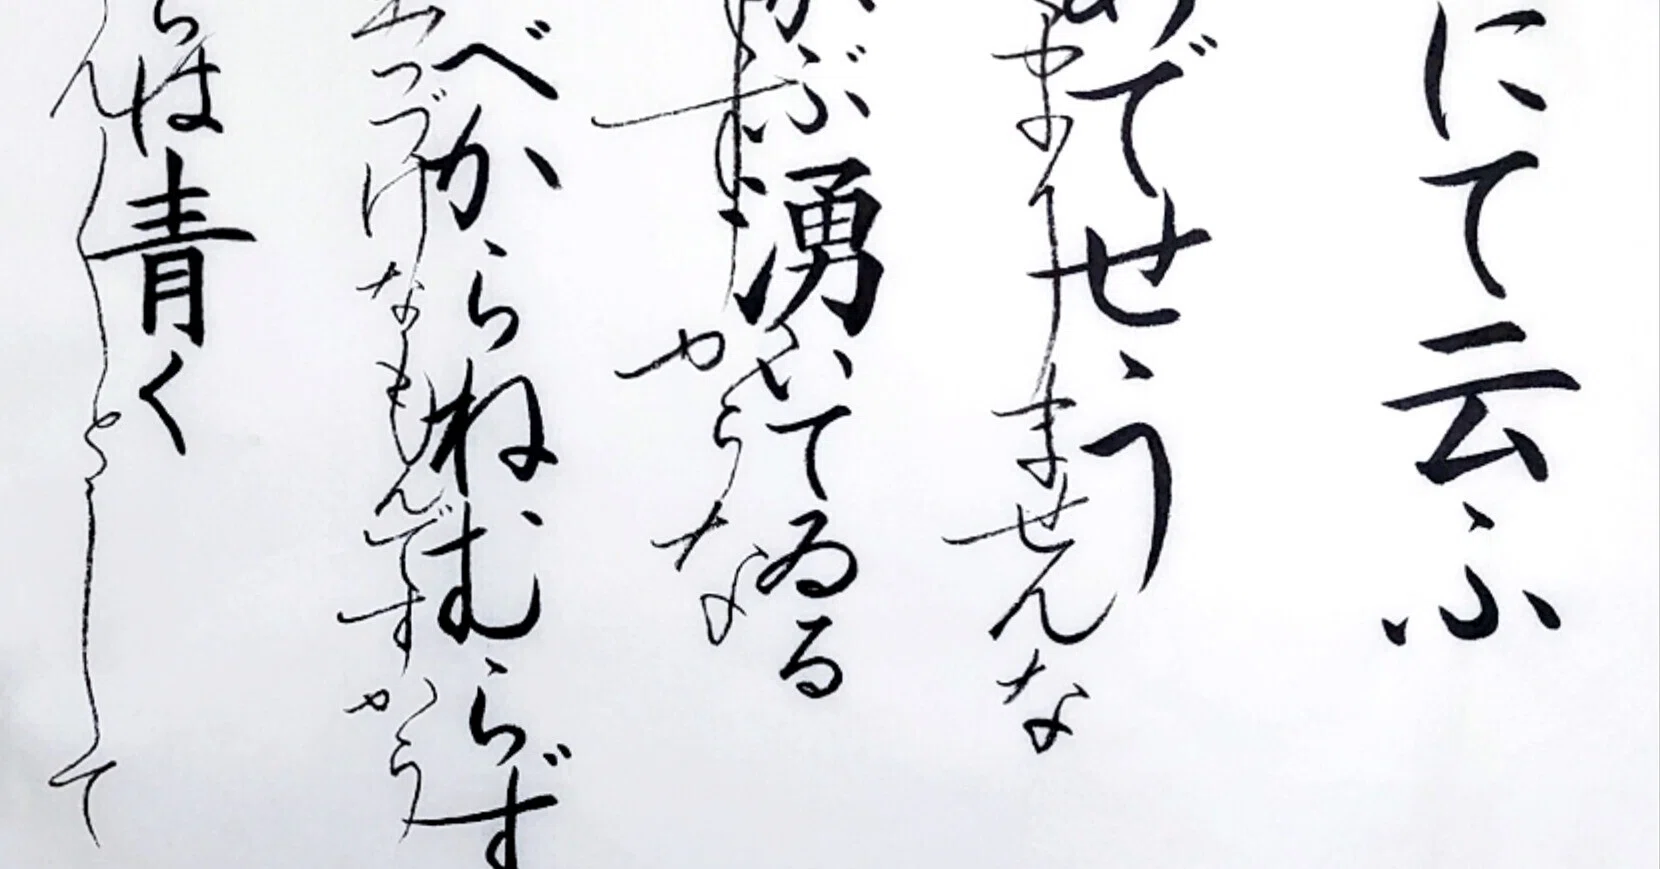 にて云ふ
めでせう
まりませんな
がぶ湧いてゐる
すからな
べからねむらず
出つづけなもんですから
らは青く
んしんとして